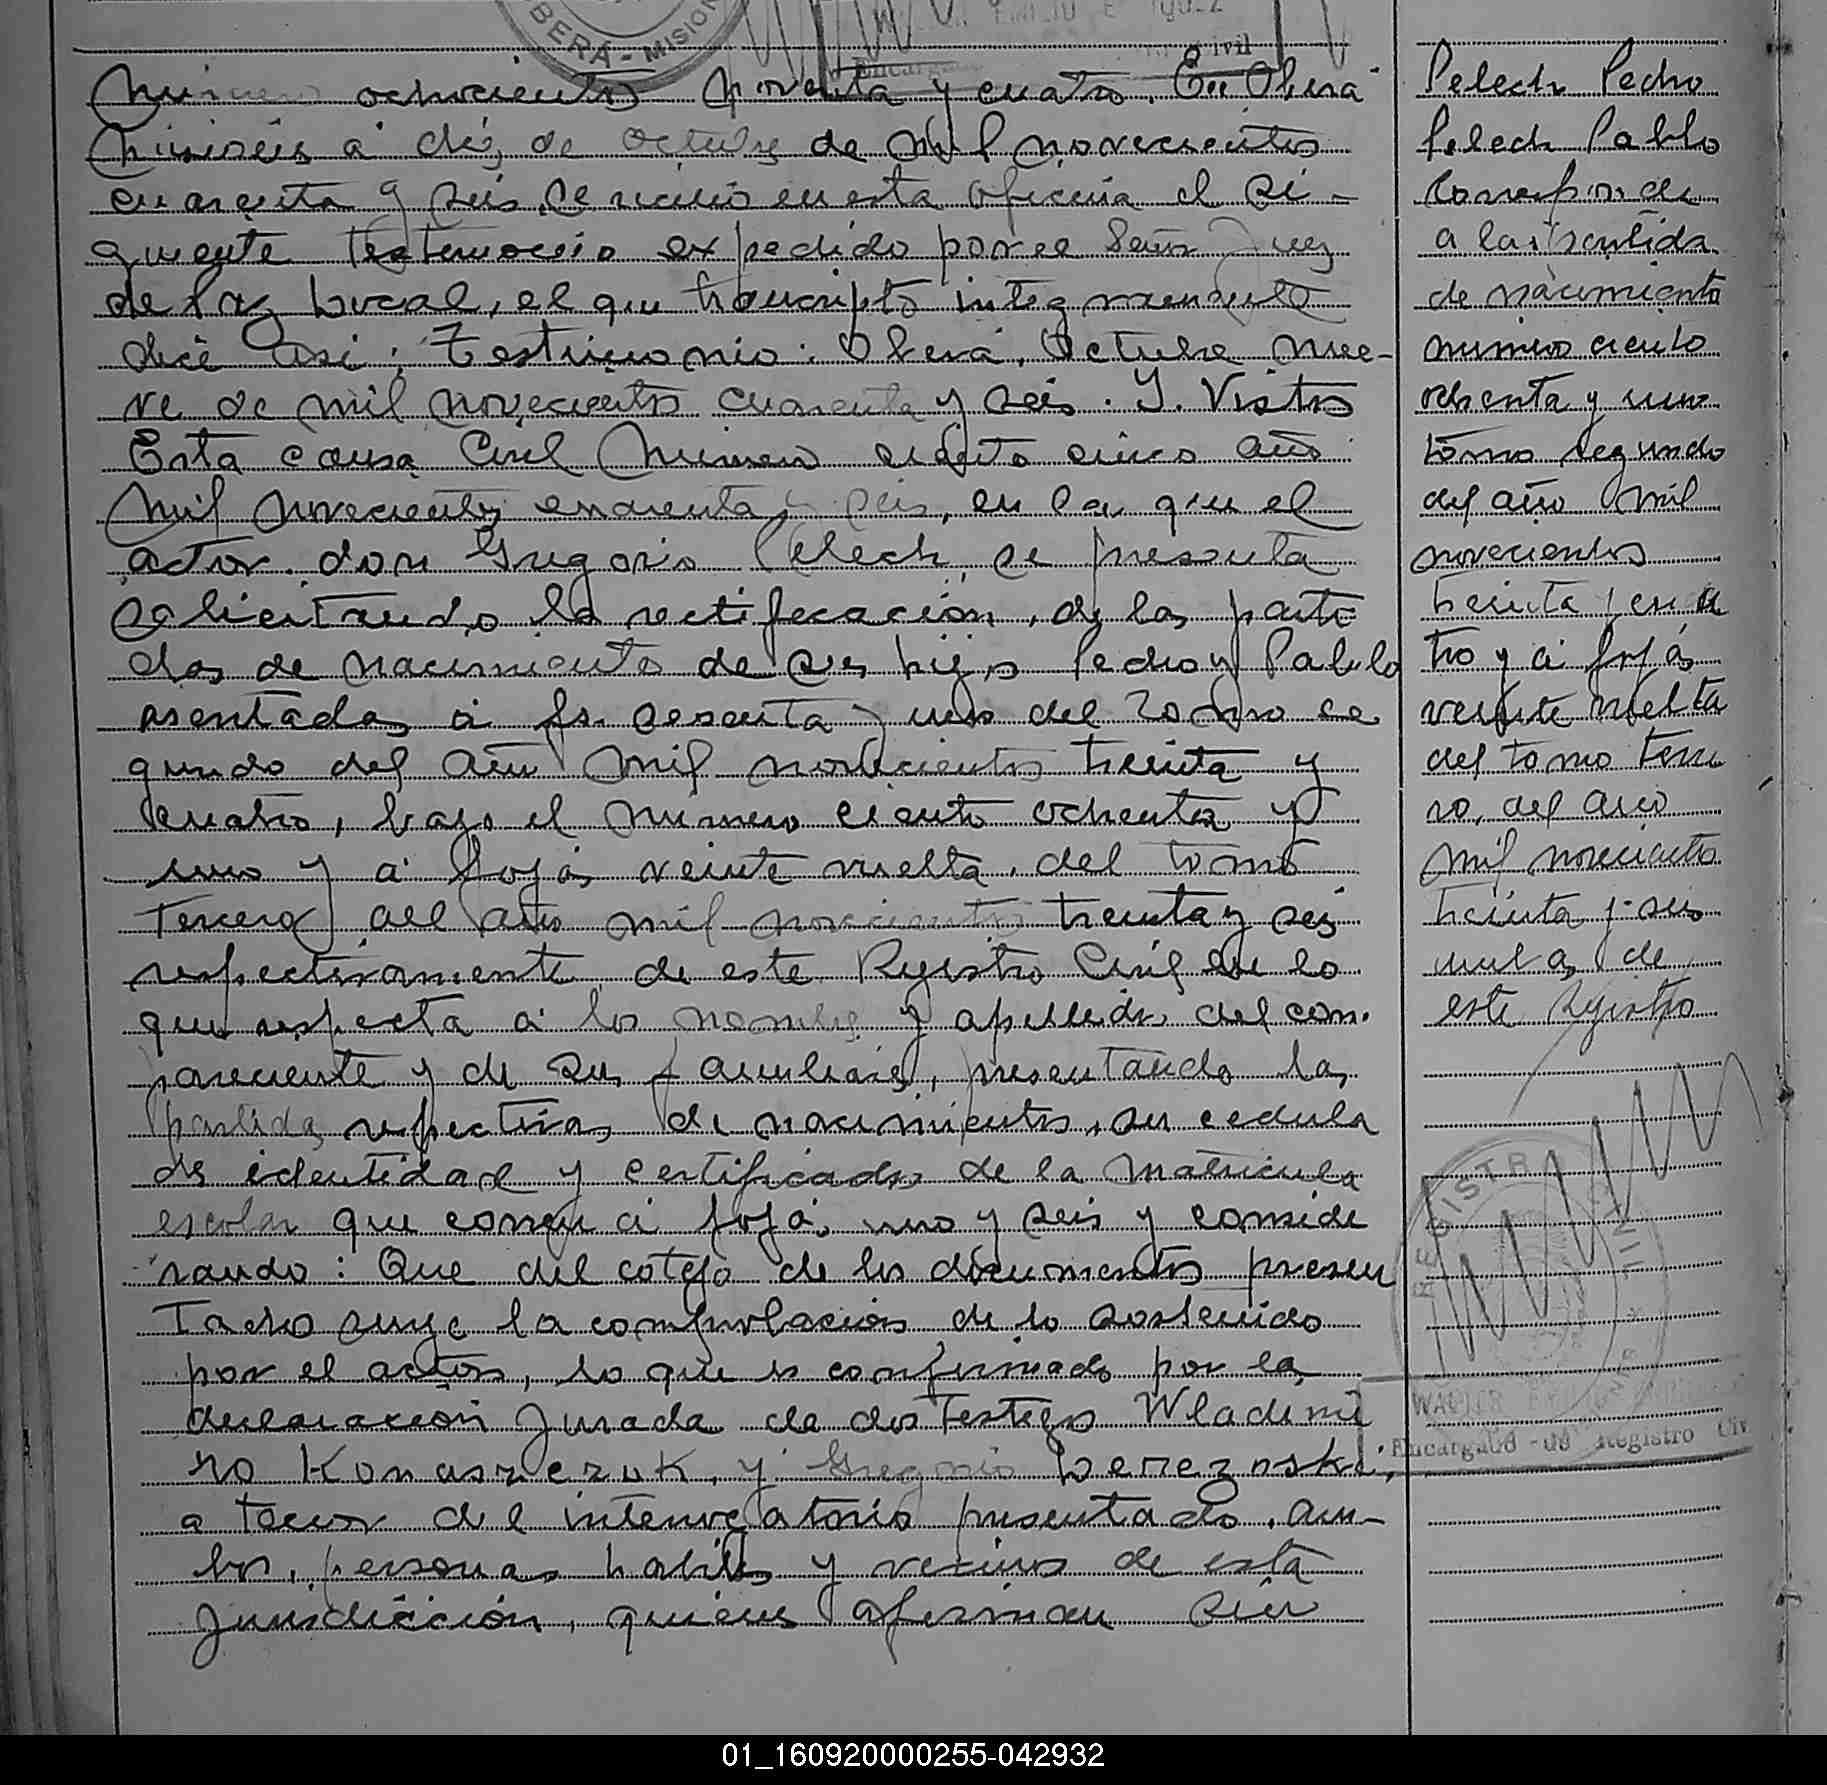 OBERÁ - MISION
Número ochocientos noventa y cuatro. En Oberá
Misiones a diez de Octubre de mil novecientos
cuarenta y seis, se recibió en esta oficina el si-
guiente testimonio expedido por el Señor Juez
de Paz Local, el que transcripto integramente
dice así: Testimonio: Oberá, Octubre nue-
ve de mil novecientos cuarenta y seis. Y. Vistos
Esta causa Civil Número ciento cinco año
mil novecientos cuarenta y seis, en la que el
actor don Gregorio Pelech, se presenta
solicitando la rectificación, de las parti
das de nacimiento de sus hijos Pedro y Pablo
asentadas a fs. sesenta y uno del Tomo se
gundo del año mil novecientos treinta y
cuatro, bajo el número ciento ochenta y
uno y a fojas veinte vuelta, del tomo
Tercero del año mil novecientos treinta y seis
respectivamente de este Registro Civil en lo
que respecta a los nombres y apellidos del com-
pareciente y de sus familiares, presentando las
partidas respectivas de nacimientos, su cedula
de identidad y certificados de la matricula
escolar que corren a fojas, uno y seis y conside
rando: Que del cotejo de los documentos presen
tados surge la comprobación de lo sostenido
por el actor, lo que es confirmado por la
declaración jurada de dos testigos Wladimi
ro Konaszczuk, y Gregorio Berezoski,
a tenor del interrogatorio presentado. am-
bos, personas habiles y vecinos de esta
jurisdicción, quienes afirman sin
Pelech Pedro
Pelech Pablo
Corresponde
a las partidas
de nacimiento
número ciento
ochenta y uno
tomo segundo
del año mil
novecientos
treinta y cua
tro y a fojas
veinte vuelta
del tomo terce
ro, del año
mil novecientos
treinta y seis
de
este registro
REGISTR CIVIL
Encargado de Registro Civ
01_160920000255-042932